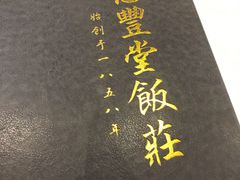 豐堂飯莊
始創于一八五八年